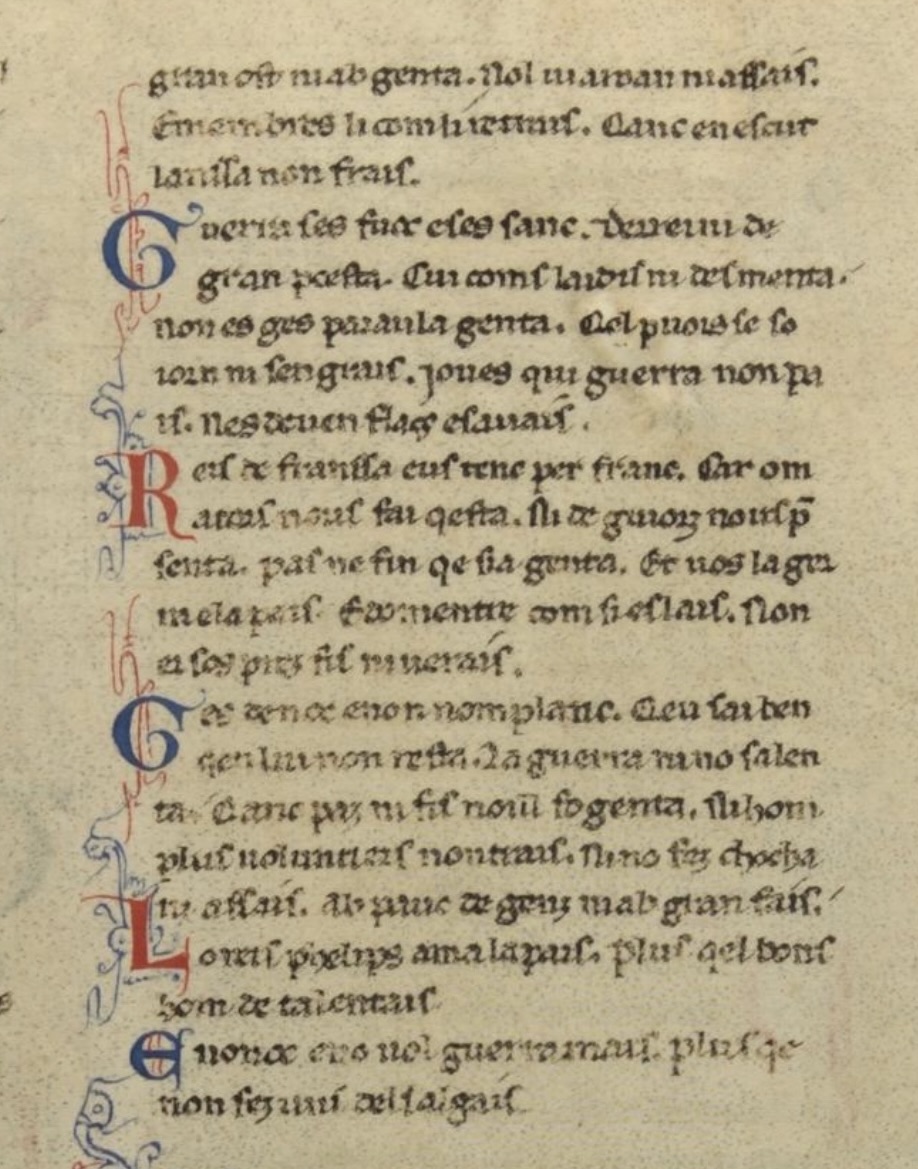 gran ost ni ab genta. Nol ui a uan ni assais.
E membres li com li
lanssa non frais.
Guerra ses fuoc e ses sanc. De rei ni de
gran poesta. Cui coms laidis ni desmenta.
non es ges paraula genta. Qel puois se so
iorn ni sengrais. Joues qui guerra non pa
is. Nes deuen flacs e sauais.
Reis de franssa eus tenc per franc. Car om
a tort nous fai qesta. Ni de gisorz nous p̄
senta. pas ne fin qe sia genta. Et uos la ger
ni e la pais. E
ei sos prez fis ni uerais.
Ges den oc e non nom planc. Qeu sai ben
qen lui non resta. La guerra ni no salen
ta. Canc paz ni fis noill fo genta. Ni hom
plus uoluntiers non trais. Ni no fez
ni assais. Ab pauc de genz ni ab gran fais.
Lo reis phelips ama la pais. plus qel bons
hom de talentais
En oc e no uol guerra mais. plus qe
non fez uns dels algais